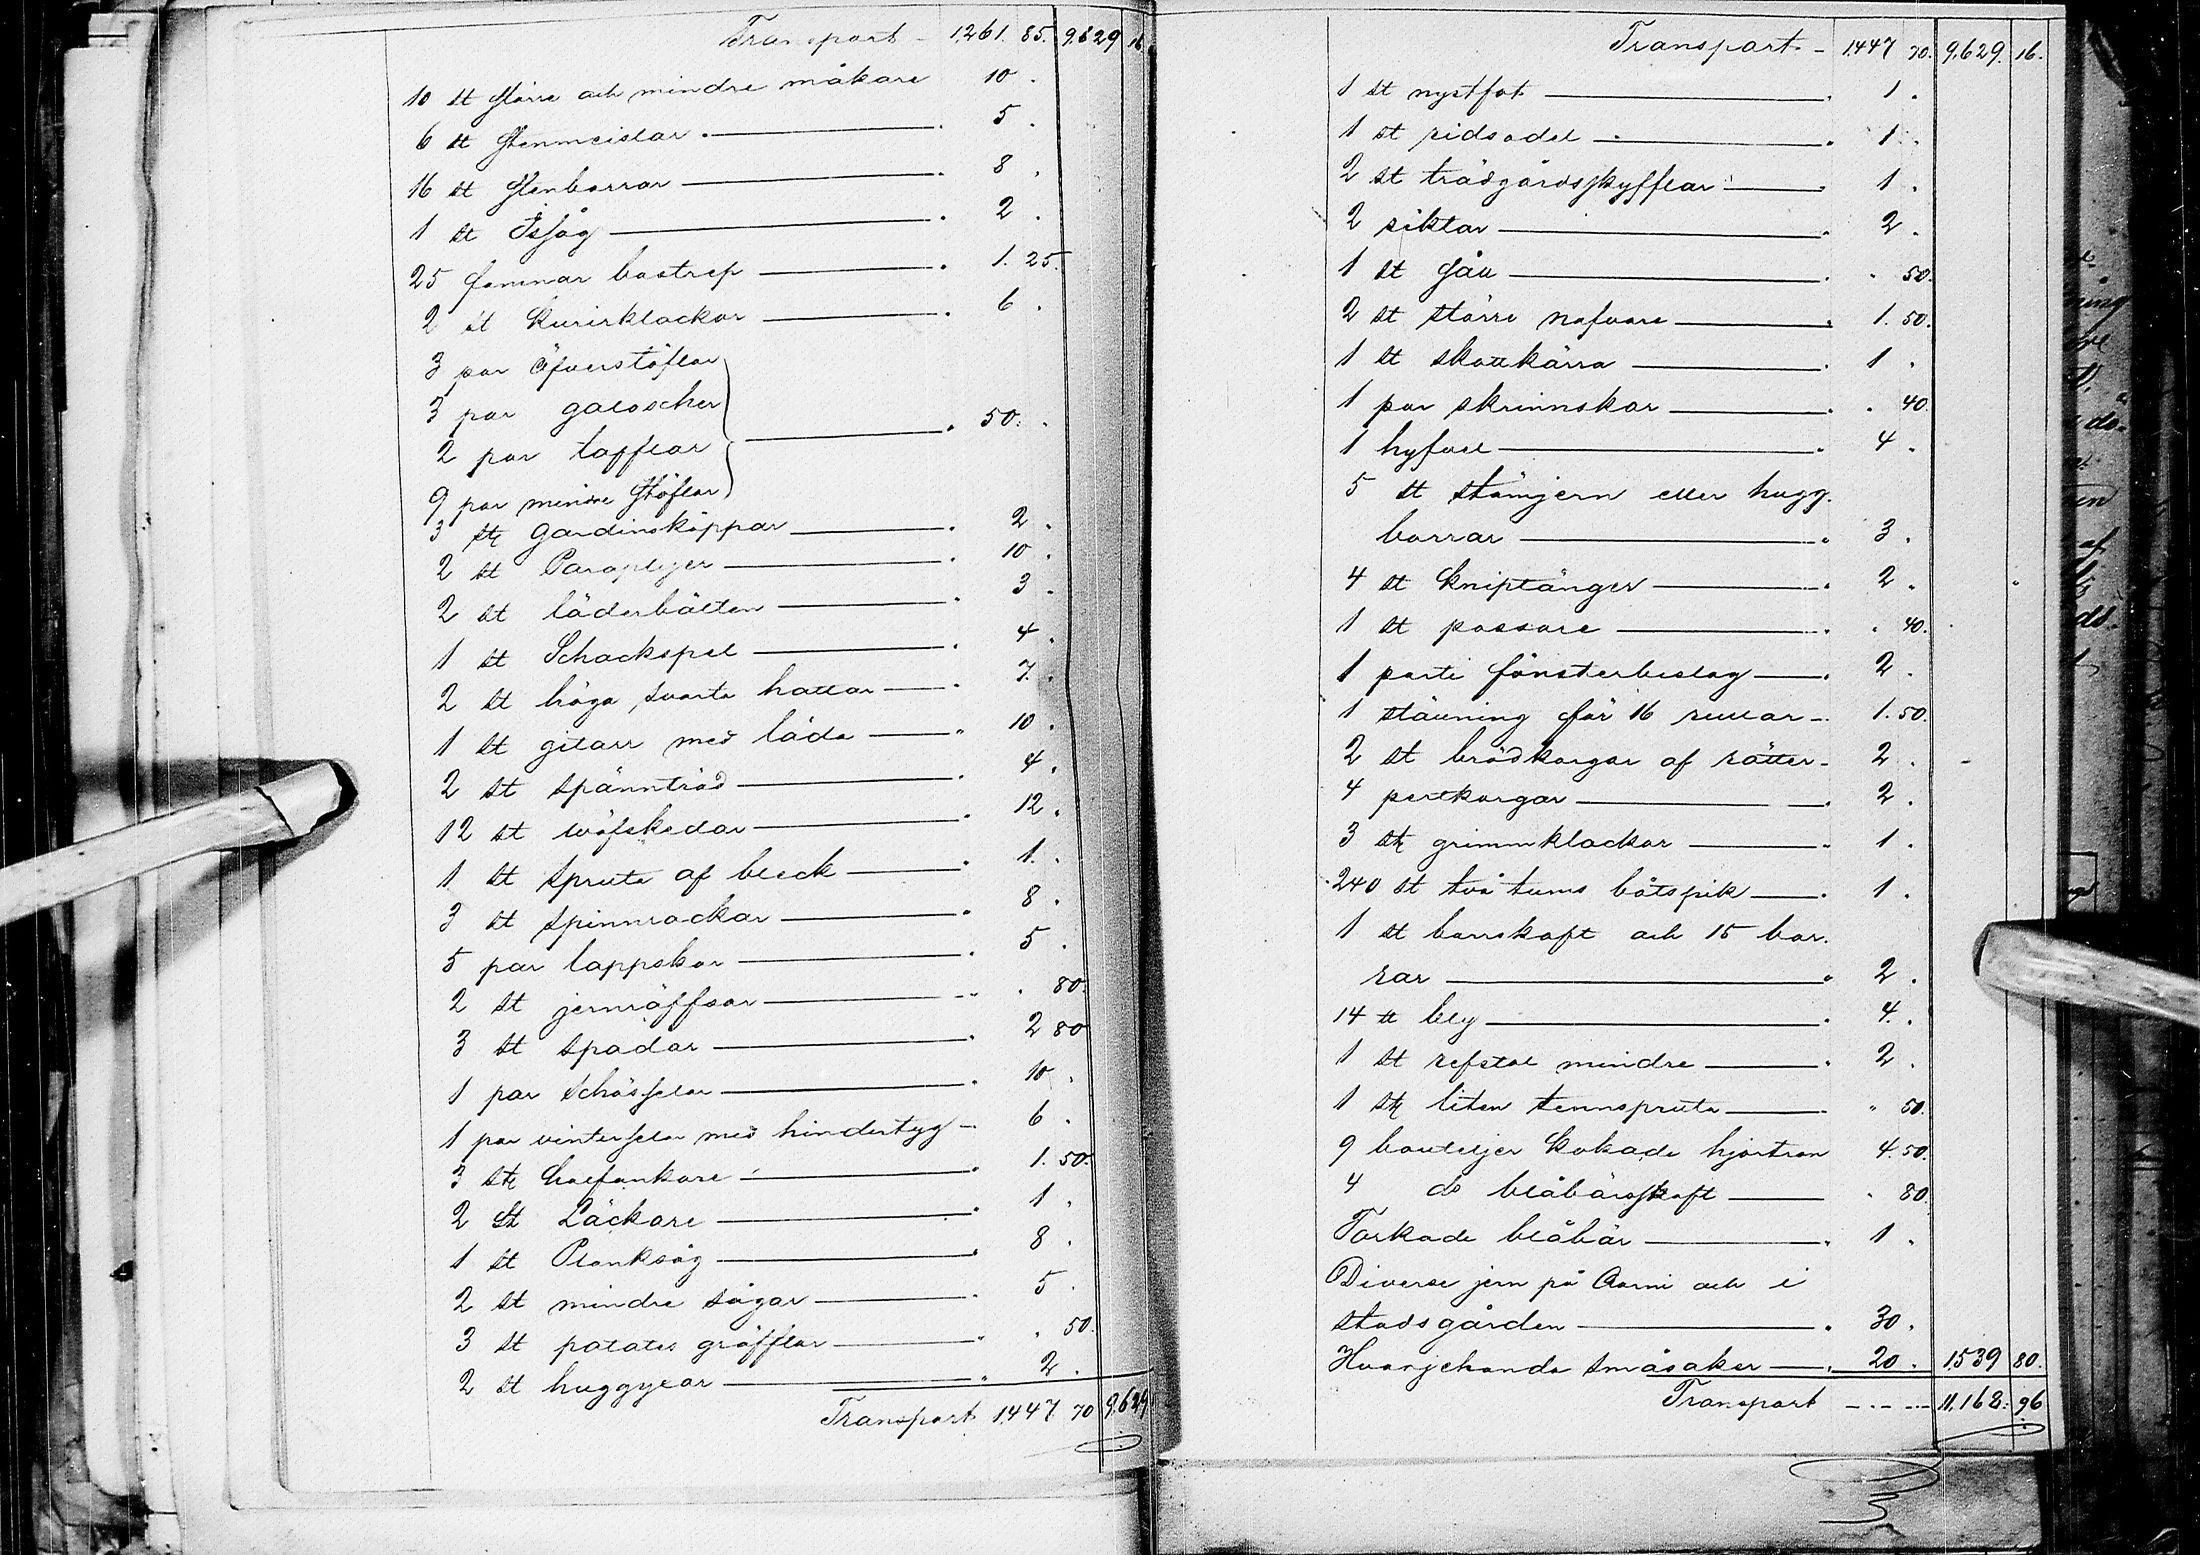 Transport - 1,261. 85. 9,629 16
10 st större och mindre måkare 10 .
6 st Stenmeislar . 5 .
16 st Stenborrar . 8 .
1 st Issåg . 2 .
25 famnar bastrep . 1. 25.
2 st kurirklockor . 6 .
3 par öfverstöflar
3 par galoscher
2 par tofflor . 50. .
9 par mindre stöflar
3 st gardinskäppar . 2 .
2 st Paraplyer . 10 .
2 st läderbälten . 3 .
1 st Schackspel . 4 .
2 st höga svarta hattar . 7. .
1 st gitarr med låda . 10 .
2 st spännträd . 4 .
12 st wäfskedar . 12 .
1 st spruta af bleck . 1. .
3 st spinnrockar . 8 .
5 par lappskor . 5 .
2 st jernräffsor . . 80.
3 st spadar . 2 80
1 par Schässelar . 10 .
1 par vinterselar med hindertyg - 6 .
3 st halfankare . 1. 50.
2 st Läckare . 1 .
1 st Planksåg . 8 .
2 st mindre sågar . 5 .
3 st potates gräfflor . . 50.
2 st huggyxor . 2 .
Transport 1,447. 70 9,629
Transport. - 1,447 70. 9,629. 16.
1 st nystfot . 1 .
1 st ridsadel . 1 .
2 st trädgårdsskyfflar . 1 .
2 siktar . 2 .
1 st såll . . 50.
2 st större nafvare . 1. 50.
1 st skottkärra . 1 .
1 par skrinnskor . . 40.
1 hyfvel . 4 .
5 st stämjern eller hugg-
borrar . 3 .
4 st kniptänger . 2 .
1 st passare . . 40.
1 parti fönsterbeslag . 2 .
1 ställning för 16 rullar - 1. 50.
2 st brödkorgar af rötter - 2 .
4 pertkorgar . 2 .
3 st grimmklockor . 1 .
240 st två tums båtspik . 1 .
1 st borrskaft och 15 bor-
rar . 2 .
14 ℔ bly . 4. .
1 st refstol mindre . 2 .
1 st liten tennspruta . " 50.
9 bouteljer kokade hjortron 4. 50.
4 do blåbärssaft . 80.
Torkade blåbär . 1 .
Diverse jern på Aarni och i
stadsgården . 30 .
Hvarjehanda småsaker . 20 . 1,539 80.
Transport - - - 11,168. 96